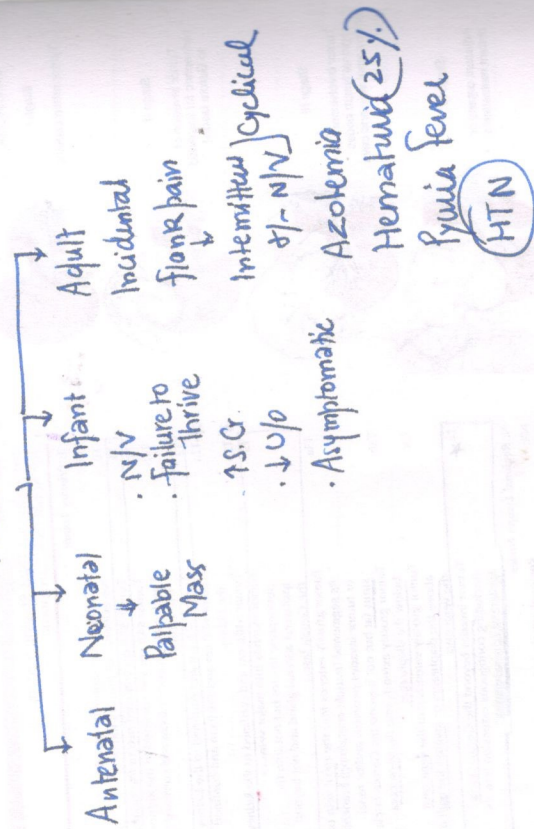 Antenatal
Neonatal
Palpable
Mass
Infant
• N/V
• Failure to
Thrive
↑S.Cr
• ↓ U/O
• Asymptomatic
Adult
Incidental
flank pain
Intermittent } Cyclical
+/- N/V
Azotemia
Hematuria (25%)
Pyuria fever
HTN